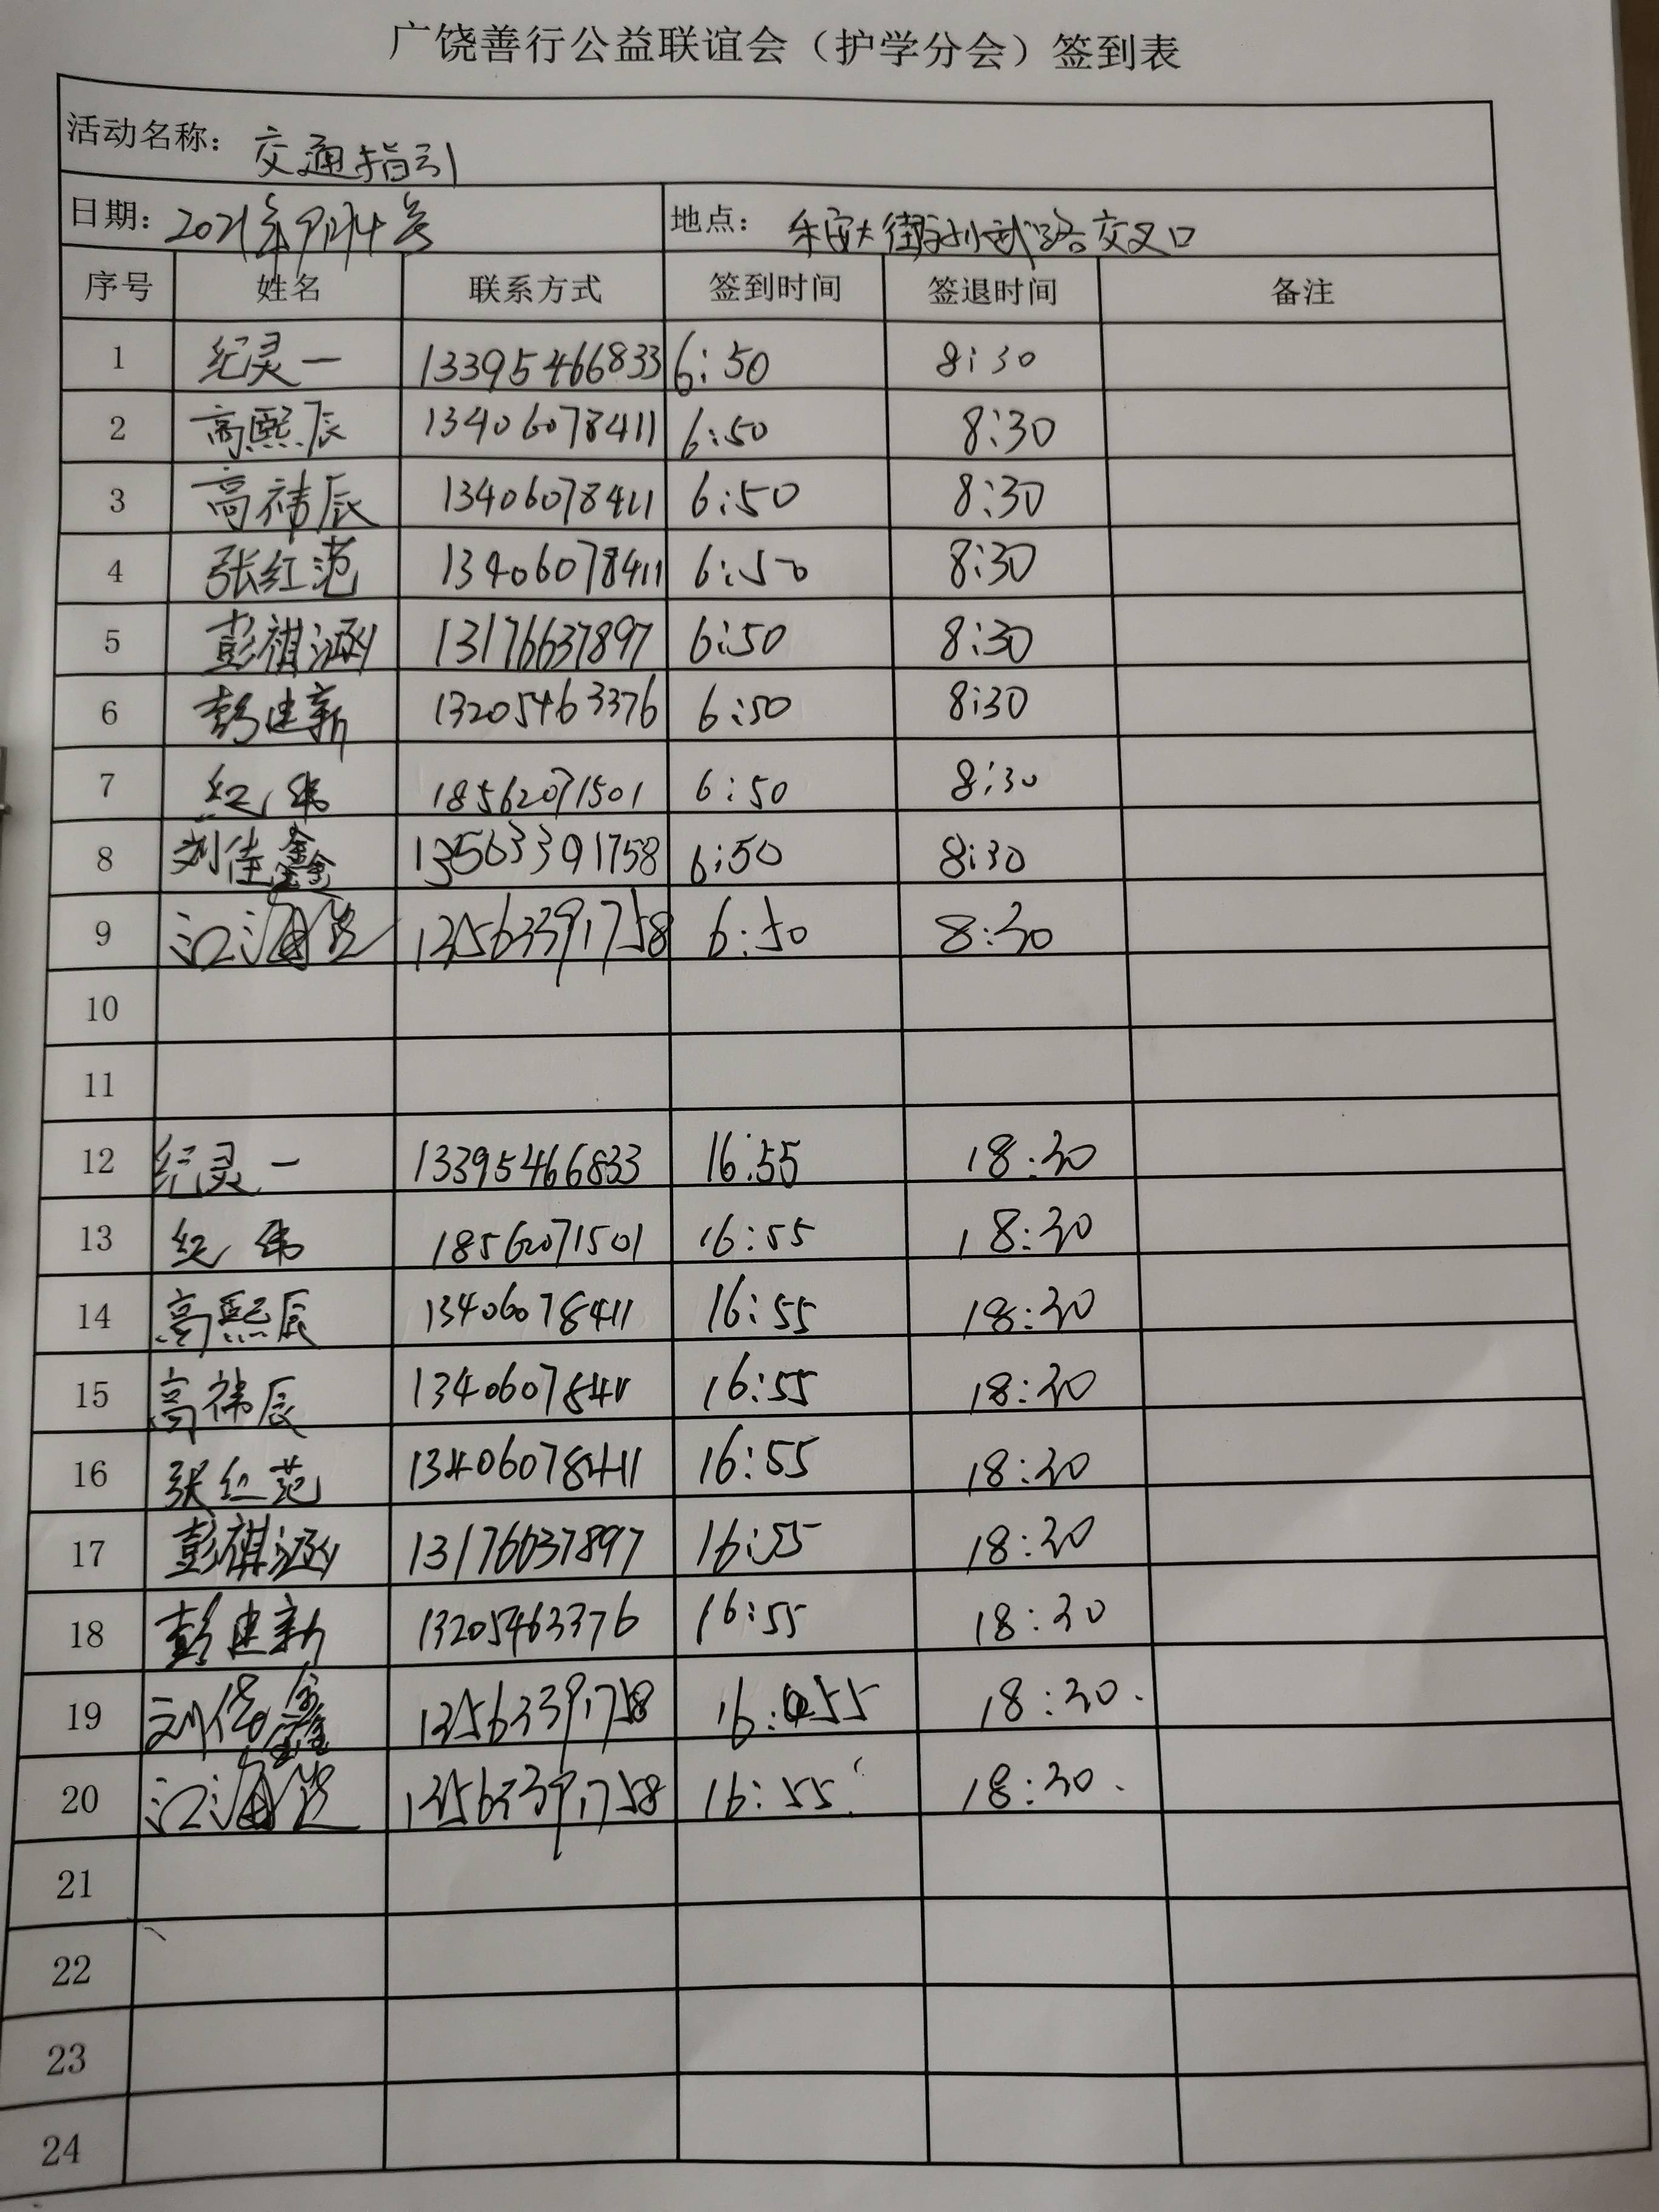 广饶善行公益联谊会（护学分会）签到表
活动名称：交通指引
日期：2021年9月14号 地点：乐安大街孙武路交叉口
序号 姓名 联系方式 签到时间 签退时间 备注
1 纪灵一 13395466833 6:50 8:30
2 高熙辰 13406078411 6:50 8:30
3 高祎辰 13406078411 6:50 8:30
4 张红范 13406078411 6:50 8:30
5 彭祺涵 13176637897 6:50 8:30
6 彭建新 13205463376 6:50 8:30
7 纪伟 18562071501 6:50 8:30
8 刘佳鑫 13563391758 6:50 8:30
9 江海 13563391758 6:50 8:30
10
11
12 纪灵一 13395466833 16:55 18:30
13 纪伟 18562071501 16:55 18:30
14 高熙辰 13406078411 16:55 18:30
15 高祎辰 13406078411 16:55 18:30
16 张红范 13406078411 16:55 18:30
17 彭祺涵 13176637897 16:55 18:30
18 彭建新 13205463376 16:55 18:30
19 刘佳鑫 13563391758 16:55 18:30.
20 江海 13563391758 16:55 18:30.
21
22
23
24